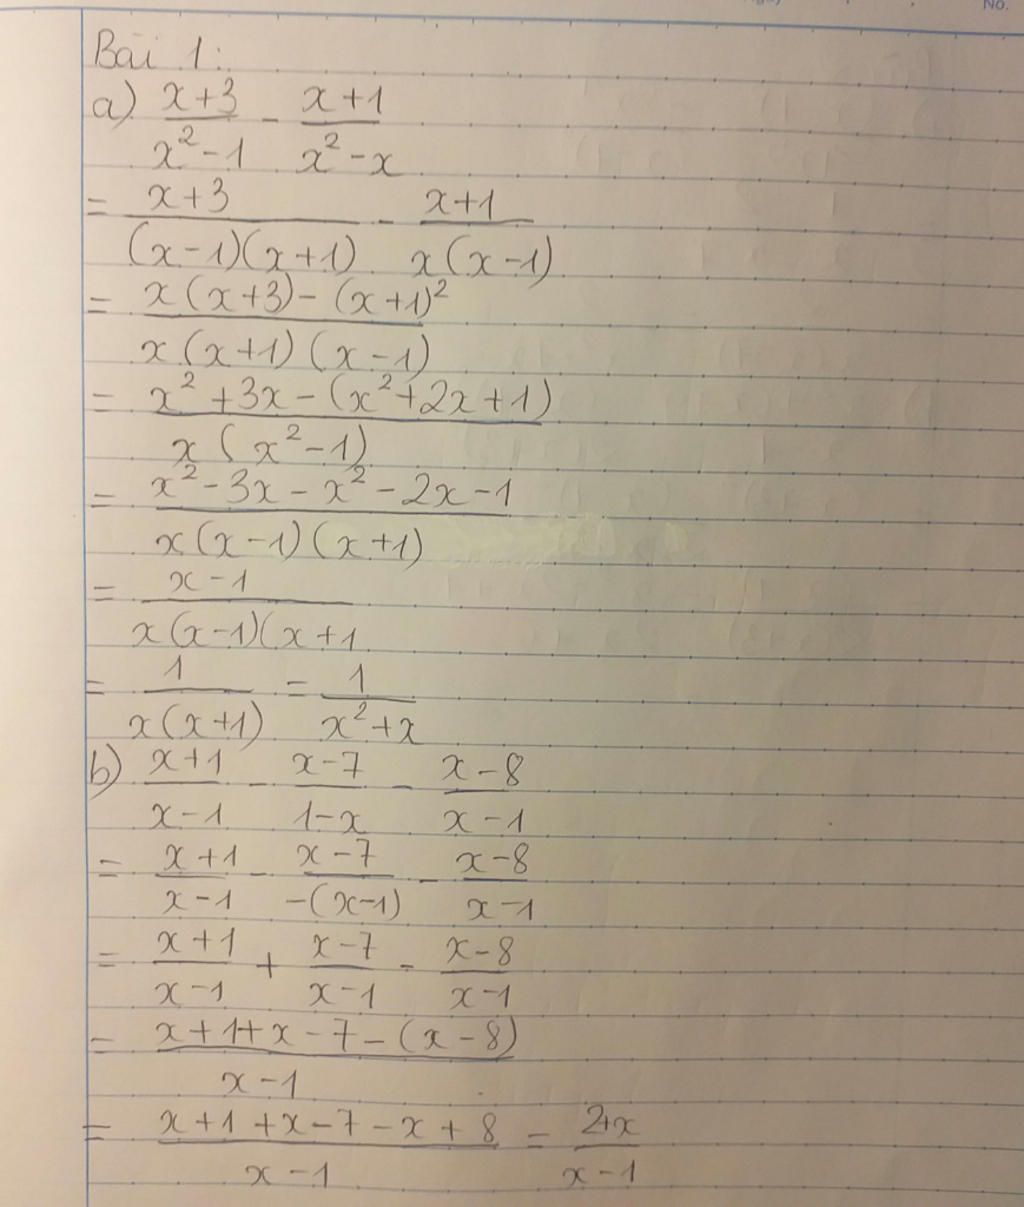 No.
Bài 1:
a) \frac{x+3}{x^2-1} - \frac{x+1}{x^2-x}
= \frac{x+3}{(x-1)(x+1)} - \frac{x+1}{x(x-1)}
= \frac{x(x+3)-(x+1)^2}{x(x+1)(x-1)}
= \frac{x^2+3x-(x^2+2x+1)}{x(x^2-1)}
= \frac{x^2-3x-x^2-2x-1}{x(x-1)(x+1)}
= \frac{x-1}{x(x-1)(x+1}
= \frac{1}{x(x+1)} = \frac{1}{x^2+x}
b) \frac{x+1}{x-1} - \frac{x-7}{1-x} - \frac{x-8}{x-1}
= \frac{x+1}{x-1} - \frac{x-7}{-(x-1)} - \frac{x-8}{x-1}
= \frac{x+1}{x-1} + \frac{x-7}{x-1} - \frac{x-8}{x-1}
= \frac{x+1+x-7-(x-8)}{x-1}
= \frac{x+1+x-7-x+8}{x-1} = \frac{2+x}{x-1}